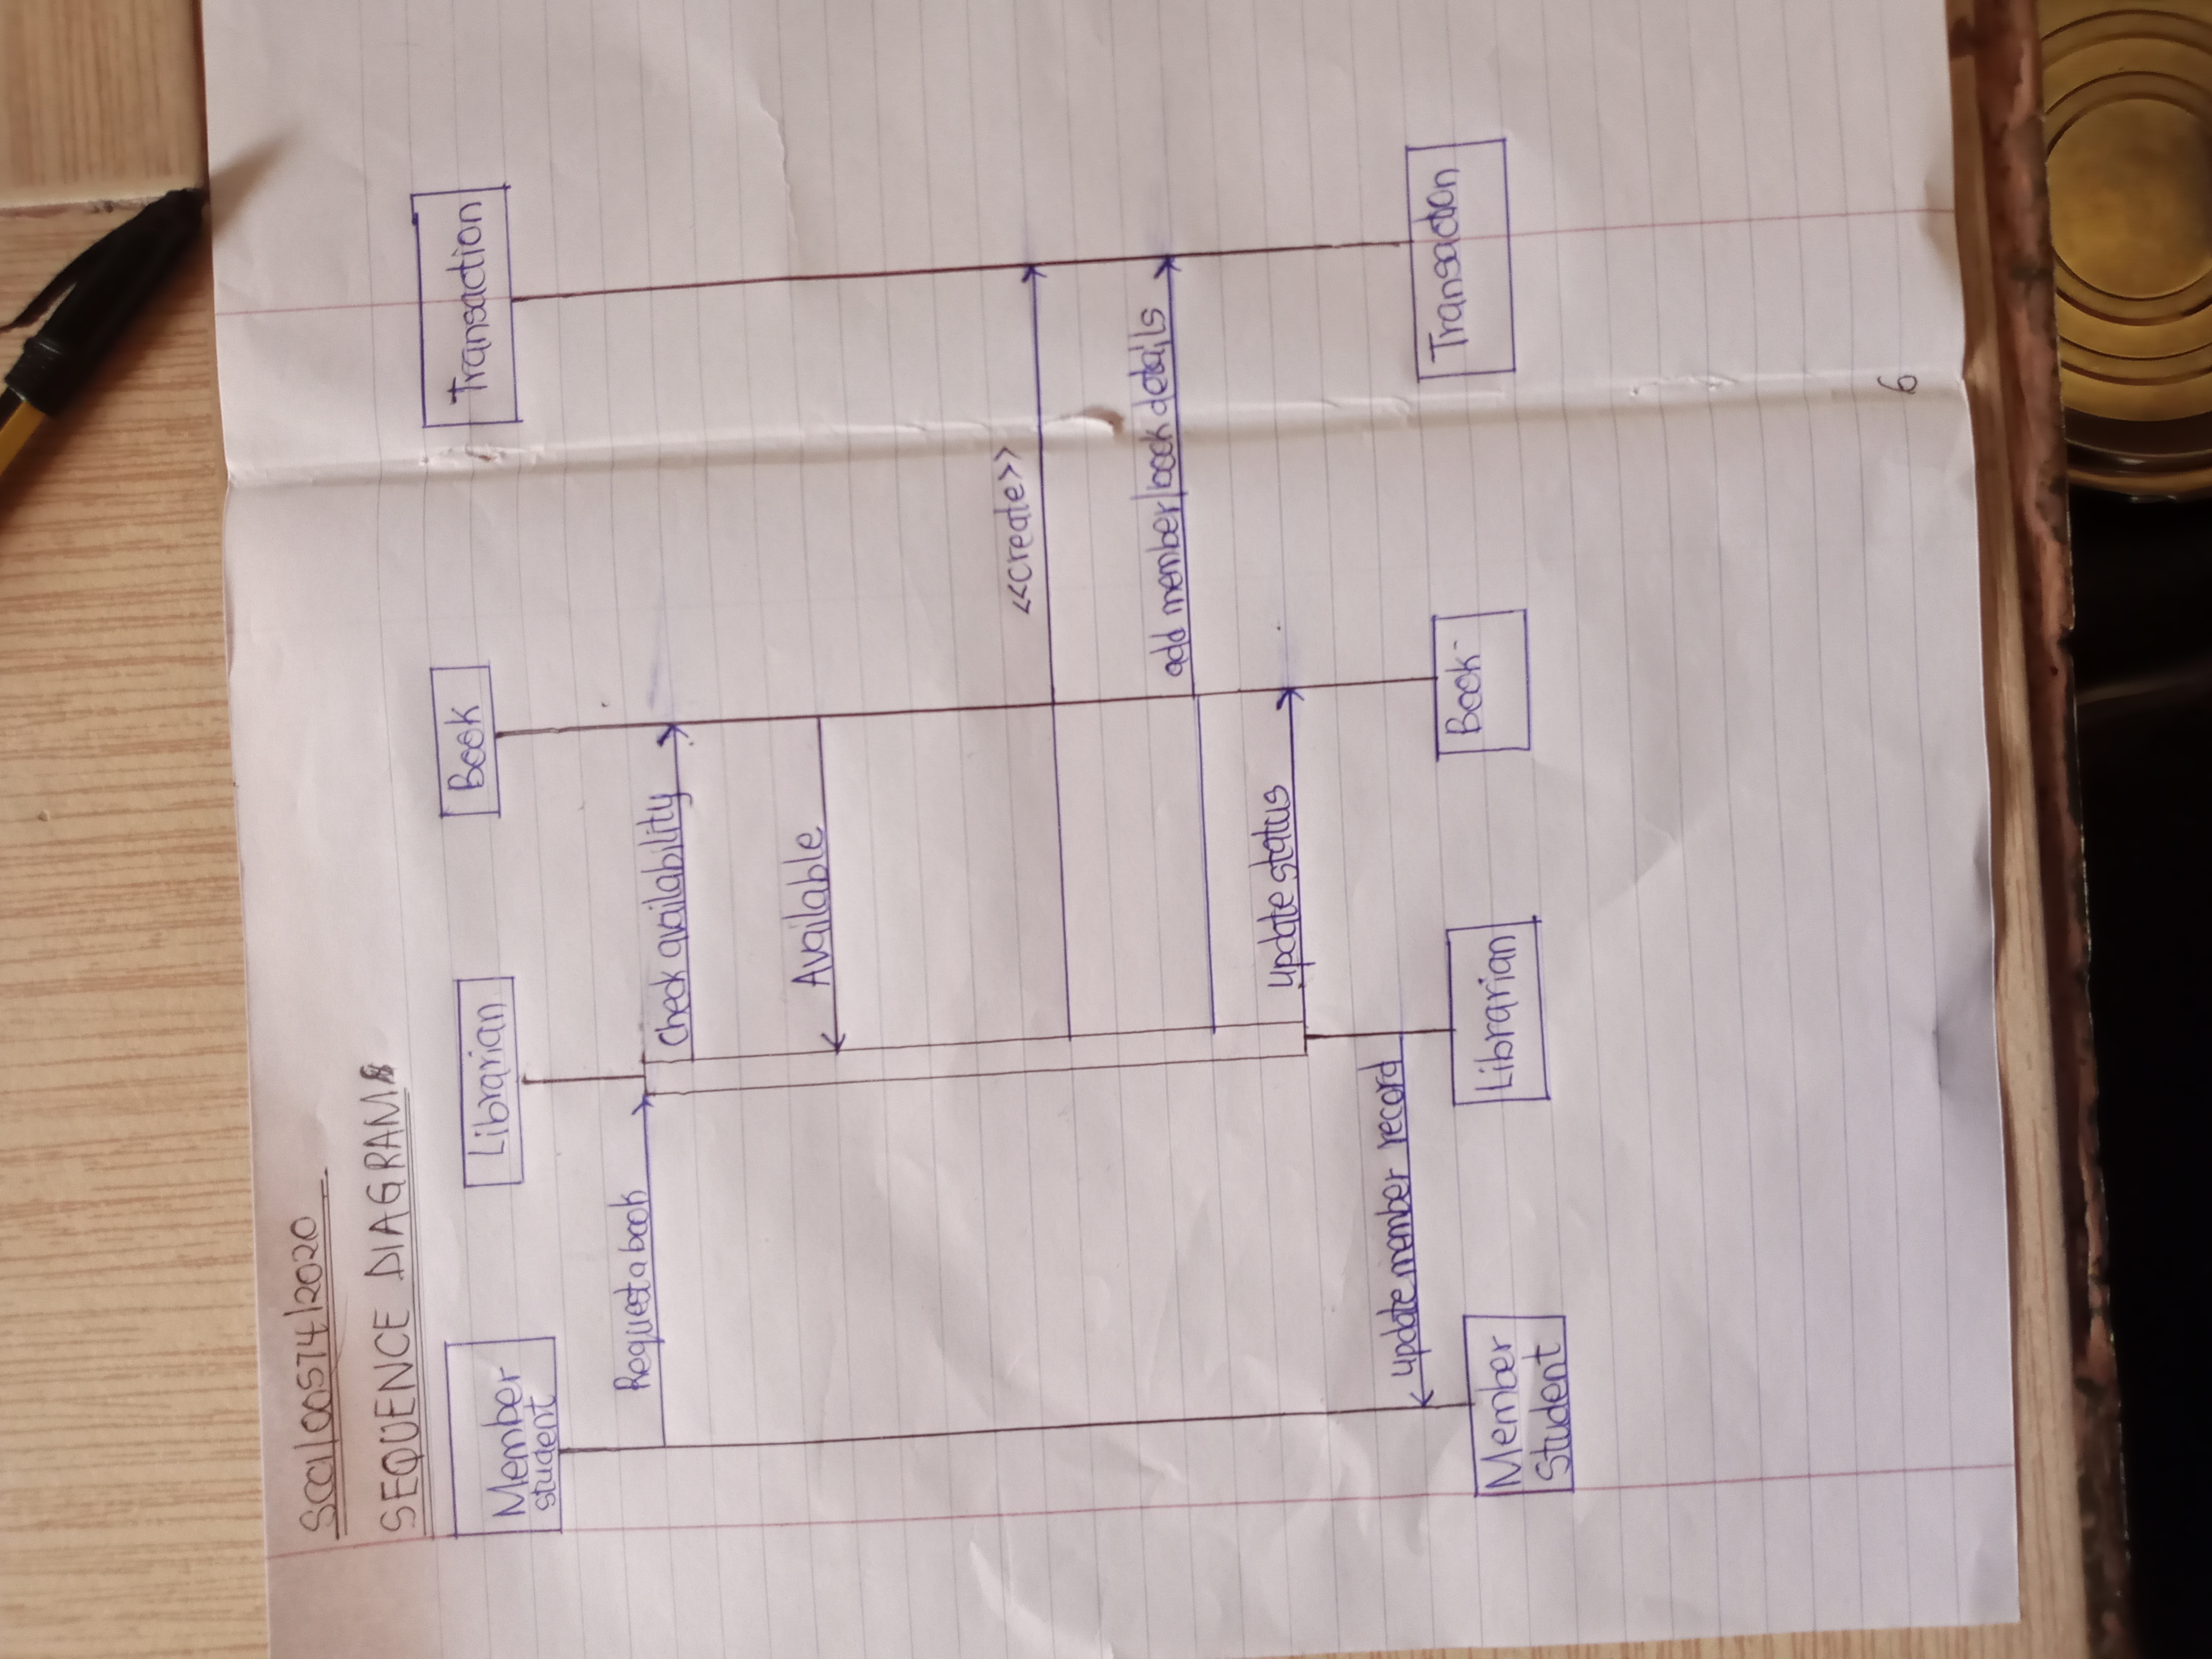 SCCI/00574/2020
SEQUENCE DIAGRAM
Member
student
Librarian
Book
Transaction
Request a book
Check availability
Available
<<create>>
add member/book details
update status
update member record
Member
Student
Librarian
Book
Transaction
6